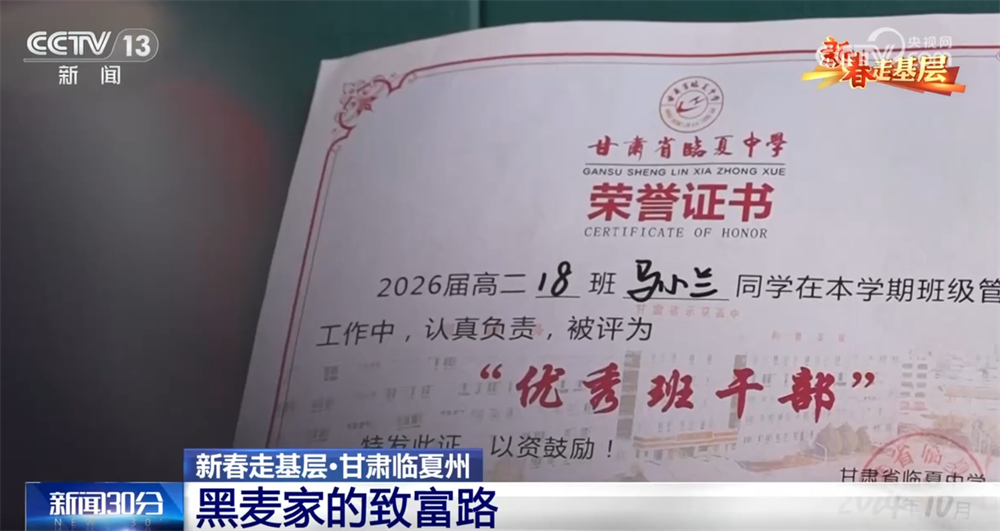 CCTV 13
新闻
央视网
新春走基层
甘肃省临夏中学
甘肃省临夏中学
GANSU SHENG LIN XIA ZHONG XUE
荣誉证书
CERTIFICATE OF HONOR
2026届高二 18 班 马小兰 同学在本学期班级管
工作中，认真负责，被评为
“优秀班干部”
特发此证，以资鼓励！
甘肃省临夏中学
2024年10月
新春走基层·甘肃临夏州
新闻30分
黑麦家的致富路